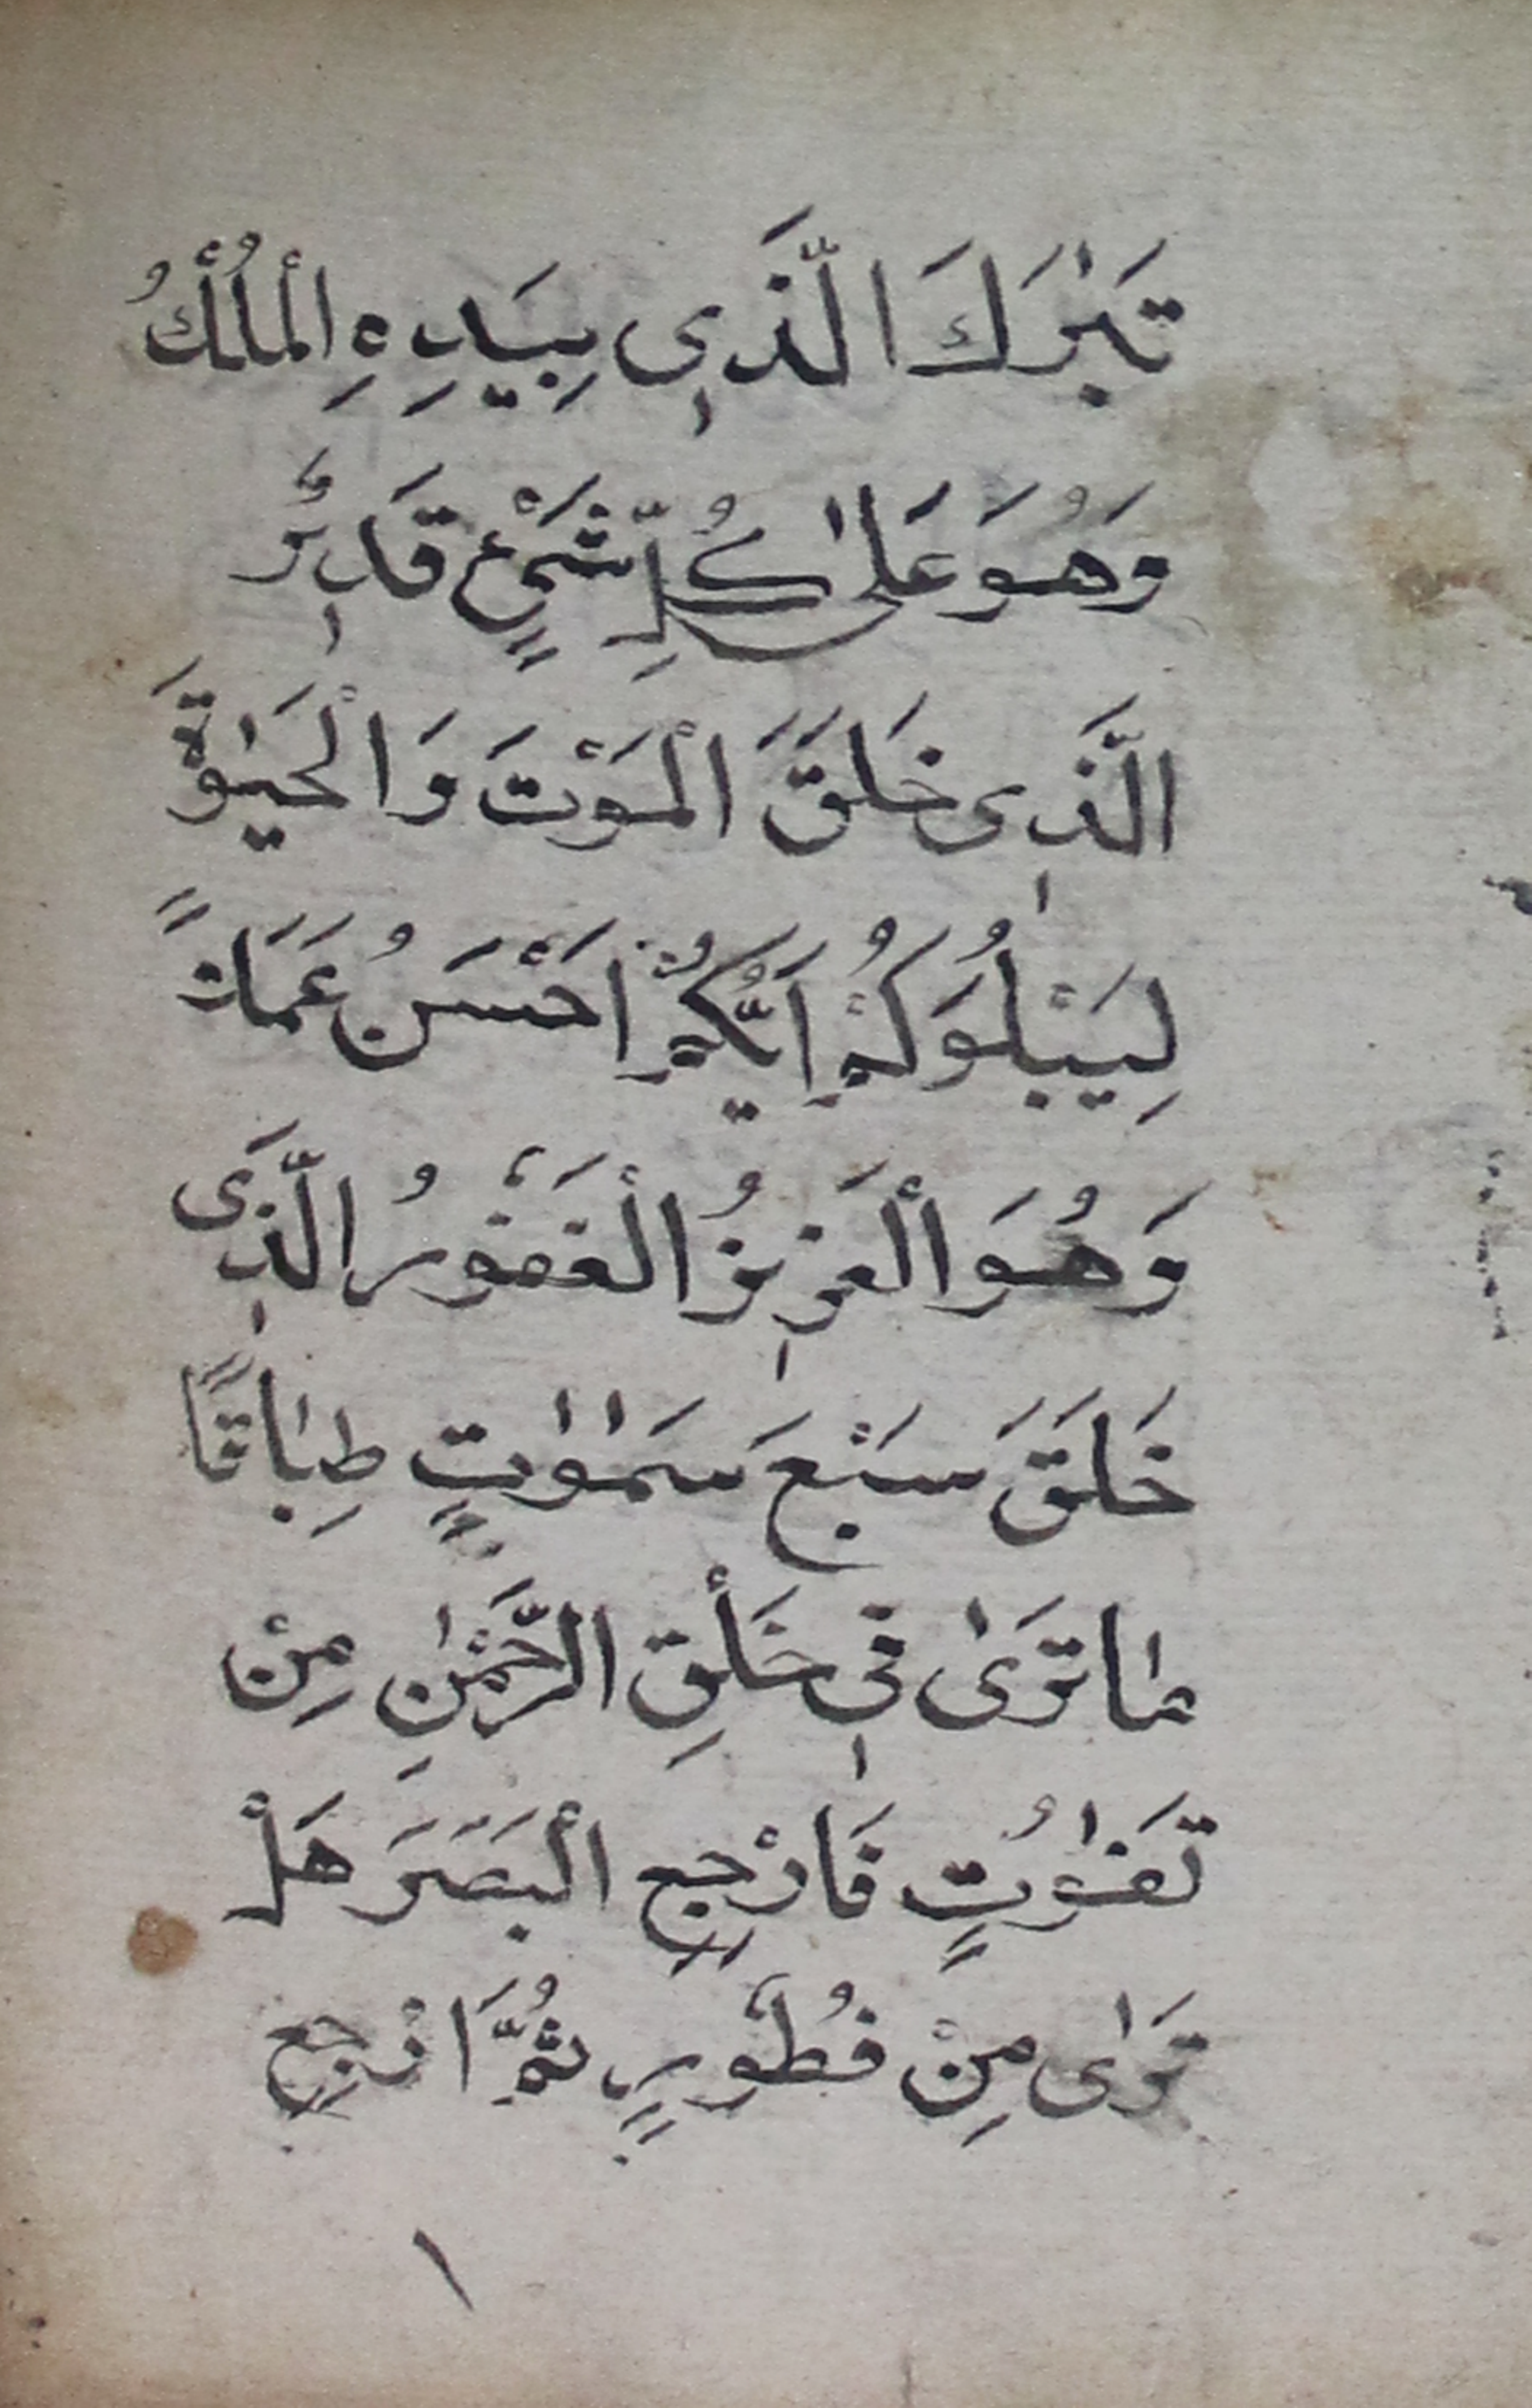 تَبٰرَكَ الَّذَٖى بِيَدِهِ اْلمُلْكُ
وَهُوَ عَلٰى كُلِّ شَىْءٍ قَدٖيرٌ
الَّذٖى خَلَقَ اْلمَوْتَ وَاْلحَيٰوةَ
لِيَبْلُوَكُمْ اَيُّكُمْ اَحْسَنُ عَمَلاً
وَهُوَ اْلعَزٖيزُ اْلغَفُورُ الَّذٖى
خَلَقَ سَبْعَ سَمٰوٰتٍ طِبٰاقًا
مٰا تَرٰى فٖى خَلْقِ الرَّحْمٰنِ مِنْ
تَفٰوُتٍ فَارْجِعِ اْلبَصَرَ هَلْ
تَرٰى مِنْ فُطُورٍ ثُمَّ ارْجِعِ
١